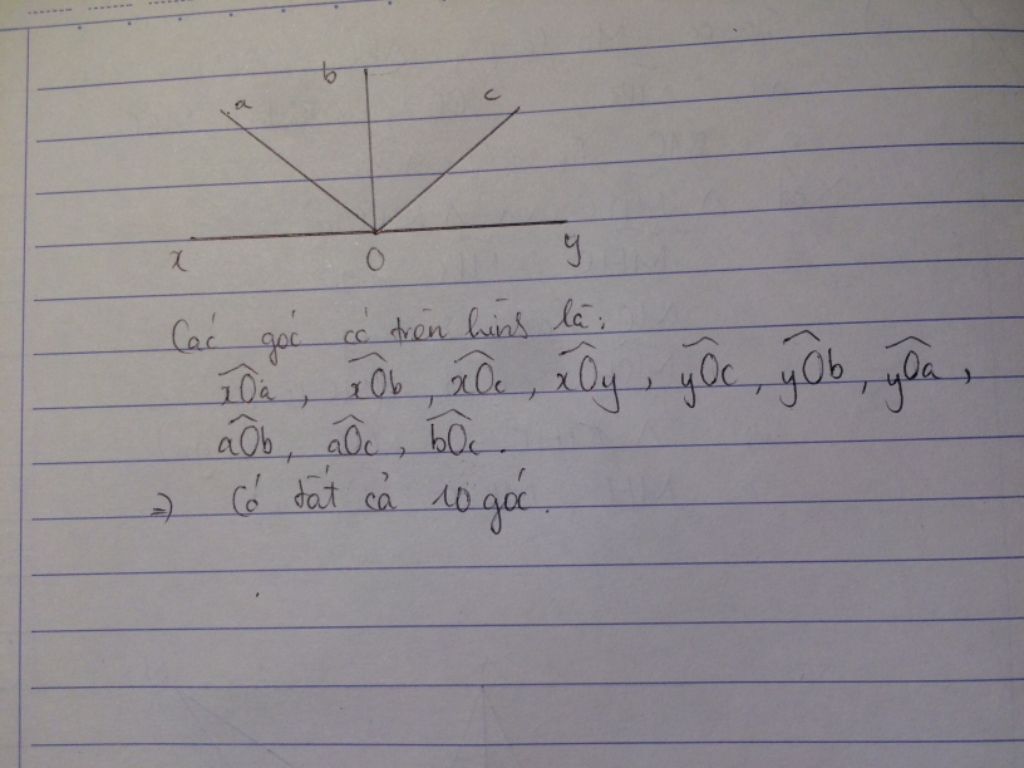 b
a
c
x
O
y
Các góc có trên hình là:
xÔa, xÔb, xÔc, xÔy, yÔc, yÔb, yÔa,
aÔb, aÔc, bÔc.
=) Có tất cả 10 góc.